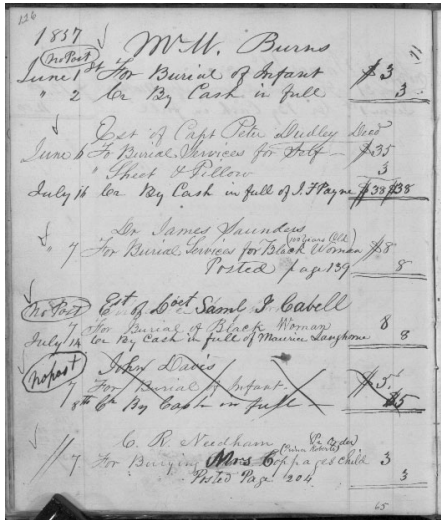 116
1857 Mr M. Burns 11
no Post
June 1st For Burial of Infant $3
" 2 Cr By Cash in full 3
Est of Capt Peter Dudley Decd
June 6 To Burial Services for Self $35
" Sheet & Pillow 3
July 16 Cr By Cash in full of J. F Payne $38 $38
Dr James Saunders
(100 Years Old)
" 7 For Burial Services for Black Woman $8
Posted page 139 8
no Post Est of Doct Saml J Cabell
7 For Burial of Black Woman 8
July 14 Cr By Cash in full of Maurice Langhorne 8
no post
John Davis
7 For Burial of Infant $5
8th Cr By Cash in full $5
C. R. Needham
7 For Burying Mrs Coppages Child 3
Posted Page 204 3
65